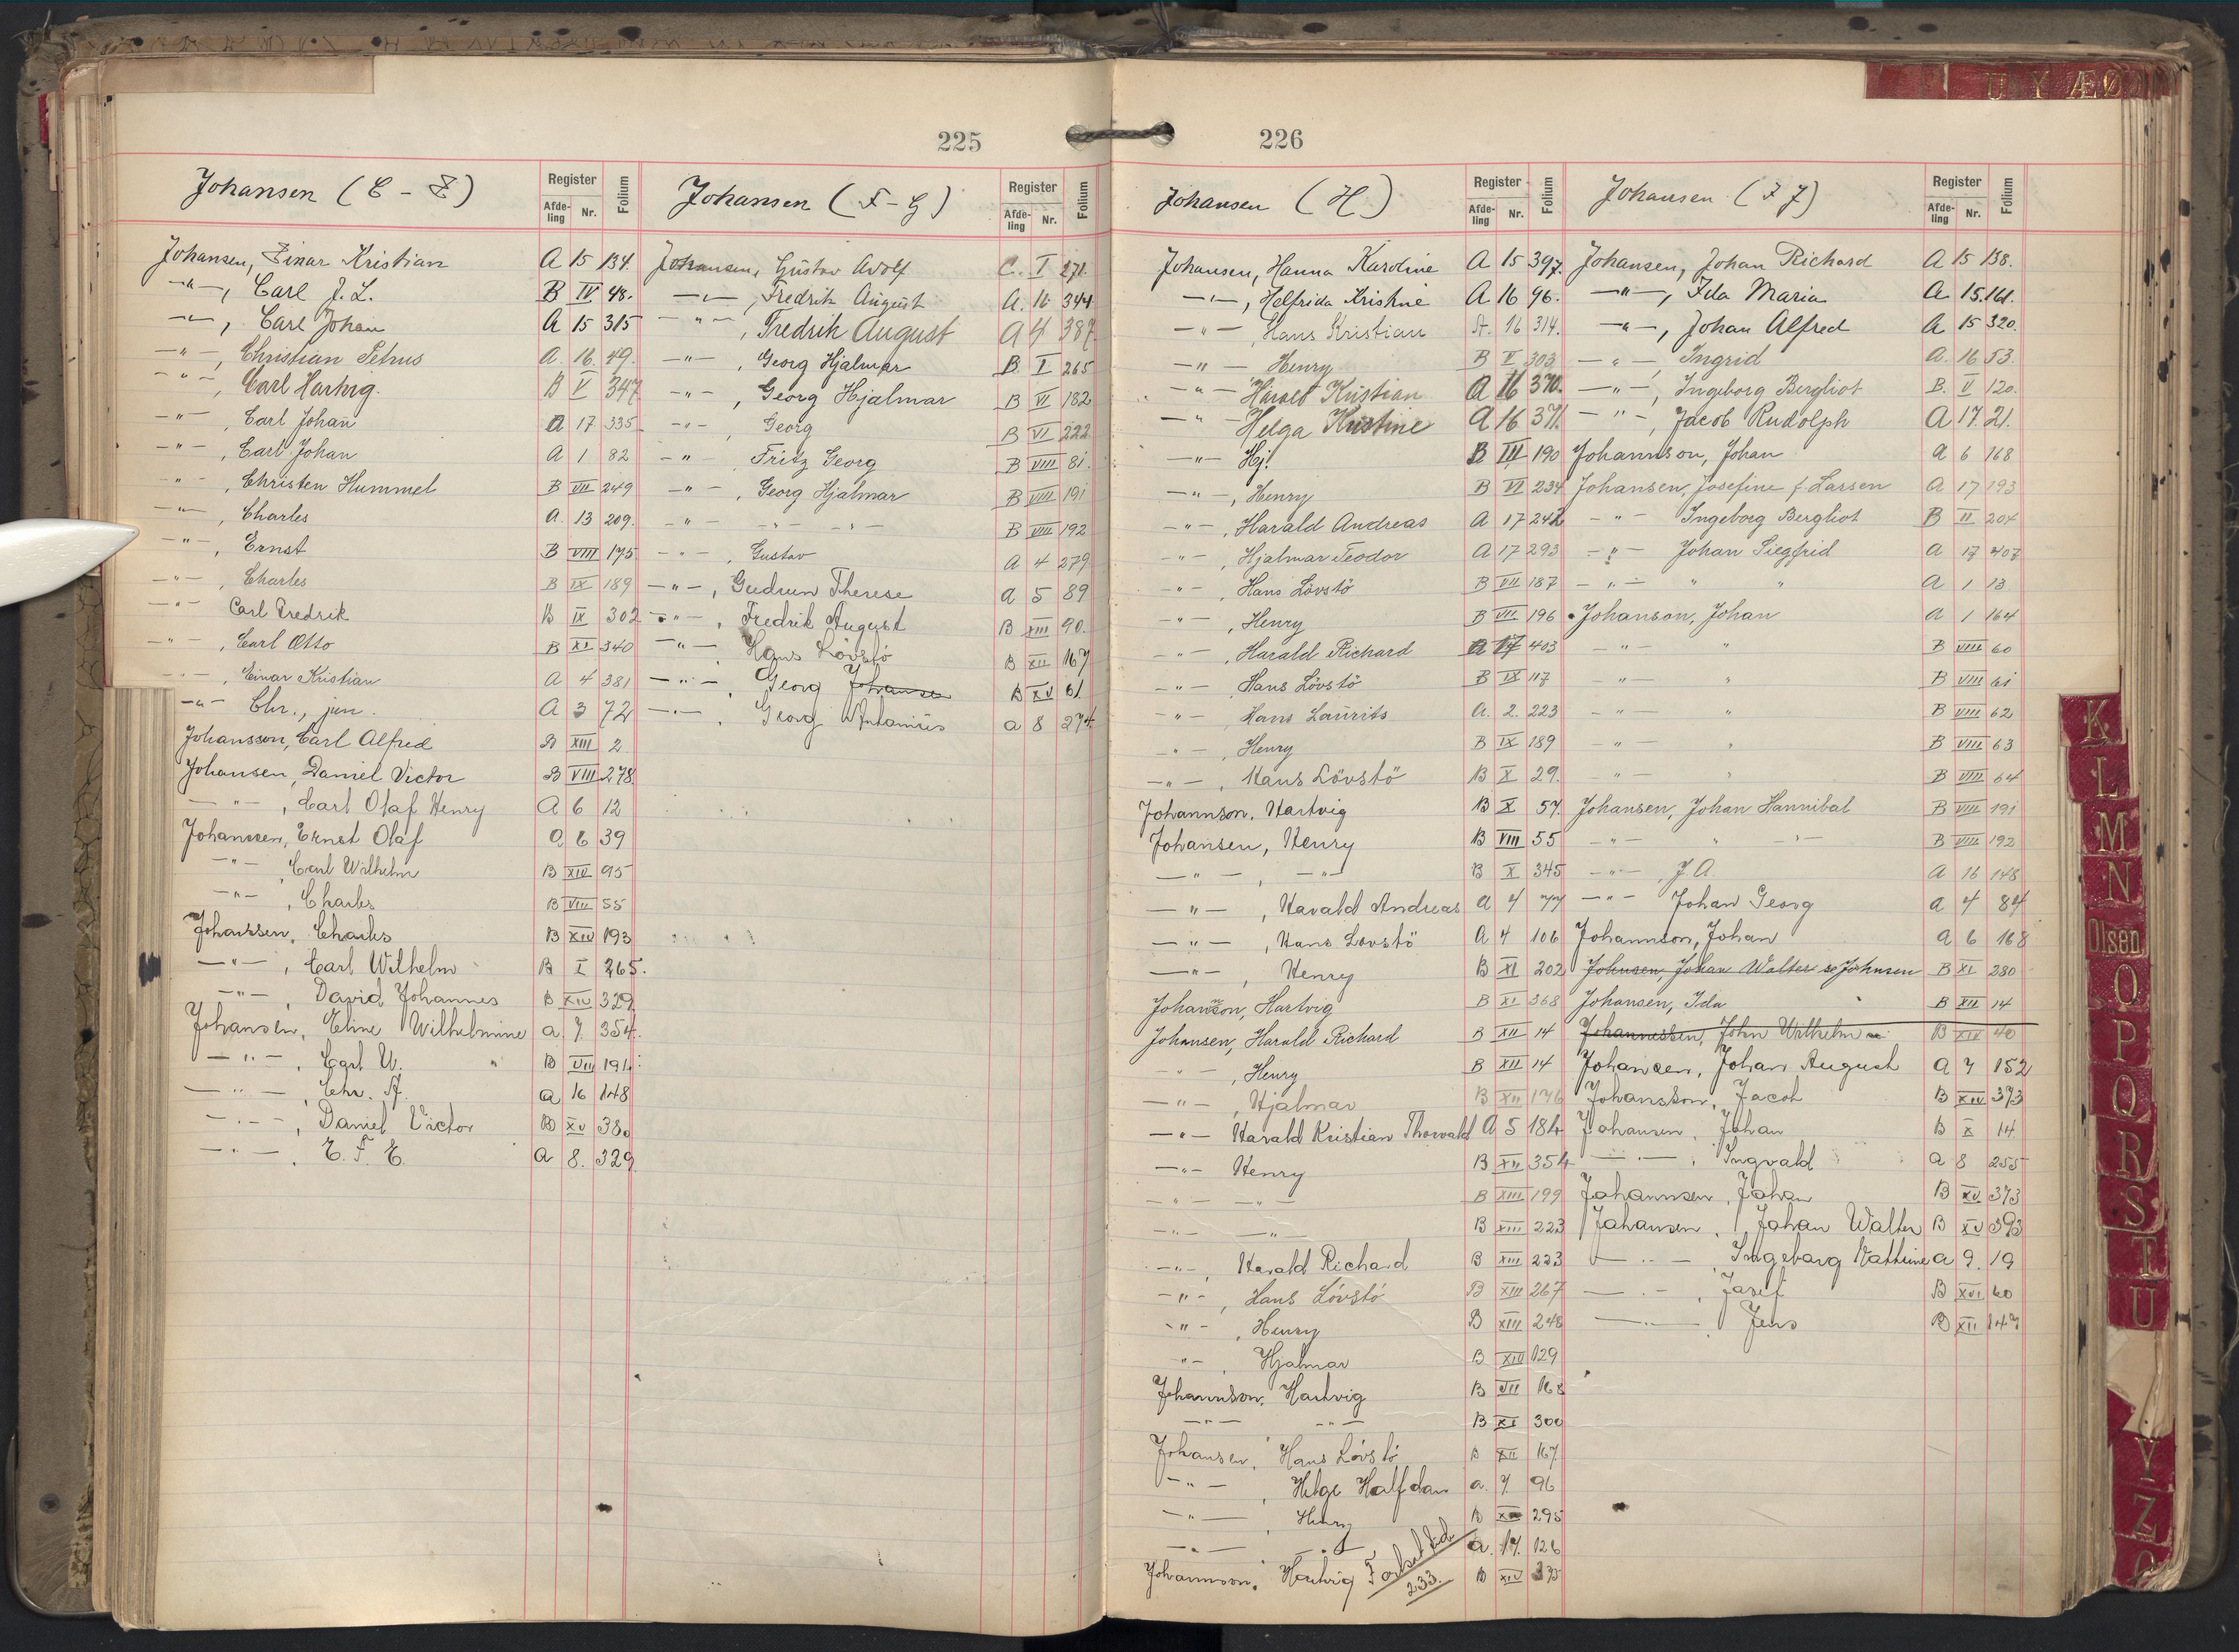 225
Johansen (C - E)
Register
Afde-ling
Nr.
Folium
Johansen, Einar Kristian A 15 134.
—"—, Carl J. L. B IV 48.
—"—, Carl Johan A 15 315
—"—, Christian Petrus A. 16. 49.
—"—, Carl Hartvig. B V 347
—"—, Carl Johan A 17 335
—"—, Carl Johan A 1 82
—"—, Christen Hummel B VII 249
—"—, Charles A. 13 209.
—"—, Ernst B VIII 175
—"—, Charles B IX 189
—"— Carl Fredrik B IX 302
—"—, Carl Otto B XI 340
—"—, Einar Kristian A 4 381
—"— Chr., jun. A 3 72
Johansson, Carl Alfred B XIII 2
Johansen, Daniel Victor B VIII 278
—"—, Carl Olaf Henry A 6 12
Johanssen, Ernst Olaf A 6 39
—"— Carl Wilhelm B XIV 95
—"—, Charles B VIII 55
Johanssen, Charles B XIV 193
—"—, Carl Wilhelm B I 265.
—"—, David Johannes B XIV 329
Johansen, Eline Wilhelmine a 7. 354.
—"—, Carl W. B VII 191
—"—, Chr. A. a 16 148
—"—, Daniel Victor B XV 380
—"—, E. F. E. a 8. 329
Johansen (F - G)
Register
Afde-ling
Nr.
Folium
Johansen, Gustav Adolf C. I 271.
—"—, Fredrik August A. 16 344
—"—, Fredrik August A 4 387
—"—, Georg Hjalmar B. I 265
—"—, Georg Hjalmar B VI 182
—"—, Georg B VI 222
—"— Fritz Georg B VIII 81.
—"—, Georg Hjalmar B VIII 191
—"— —"— —"— B VIII 192
—"—, Gustav A 4 279
—"—, Gudrun Therese a 5 89
—"—, Fredrik August B XIII 90.
—"—, Hans Lövstö B XII 167
—"—, Georg Johansen B XV 61
—"—, Georg Antonius a 8 274
226
Johansen (H)
Register
Afde-ling
Nr.
Folium
Johansen, Hanna Karoline A 15 397.
—"—, Helfrida Kristine A 16 96.
—"—, Hans Kristian A. 16 314.
—"— Henry B V 303
—"— Harald Kristian A 16 370.
—"— Helga Kristine A 16 371.
—"— Hj. B III 190
—"—, Henry B VI 234
—"—, Harald Andreas A 17 242
—"—, Hjalmar Teodor A 17 293
—"—, Hans Lövstö B VII 187
—"—, Henry B VII 196
—"—, Harald Richard A 17 403
—"—, Hans Lövstö B IX 117
—"— Hans Laurits A. 2. 223
—"—, Henry B IX 189
—"—, Hans Lövstö B X 29.
Johannson, Hartvig B X 57.
Johansen, Henry B VIII 55
—"—, —"— B X 345
—"—, Harald Andreas A 4 77
—"—, Hans Lovstö A 4 106
—"—, Henry B XI 202
Johanson, Hartvig B XI 368
Johansen, Harald Richard B XII 14
—"—, Henry B XII 14
—"—, Hjalmar B XII 176
—"— Harald Kristian Thorvald A 5 184
—"— Henry B XII 354
—"— —"— B XIII 199
—"— —"— B XIII 223
—"—, Harald Richard B XIII 223
—"—, Hans Lövstö B XIII 267
—"—, Henry B XIII 248
—"—, Hjalmar B XIII 129
Johannson, Hartvig B VII 168
—"— —"— B XI 300
Johansen, Hans Lövstö B XII 167
—"—, Helge Halfdan a. 7. 96
—"—, Henry B 295
—"— —"— a. 17. 126
Johannson, Hartvig B XIV 335
233.
Johansen (I J)
Register
Afde-ling
Nr.
Folium
Johansen, Johan Richard A 15 138.
—"—, Ida Maria A 15. 161.
—"—, Johan Alfred A 15 320.
—"—, Ingrid A. 16 53.
—"—, Ingeborg Bergliot B. V 120.
—"—, Jacob Rudolph A 17. 21.
Johannson, Johan A 6 168
Johansen, Josefine f. Larsen A 17 193
—"— Ingeborg Bergliot B II 204
—"— Johan Siegfrid A 17 407
—"— " " A 1 13
Johanson, Johan A 1 164
—"— " B VIII 60
—"— " B VIII 61
—"— " B VIII 62
—"— " B VIII 63
—"— " B VIII 64
Johansen, Johan Hannibal B VIII 191
—"— " —"— B VIII 192
—"—, J. A. A 16 148
—"— Johan Georg a 4 84
Johannson, Johan a 6 168
Johnsen, Johan Walter se Johnsen B XI 280
Johansen, Ida B XII 14
Johannessen, John Wilhelm B XIV 40
Johansen, Johan August a 7 152
Johansson, Jacob B XIV 373
Johansen, Johan B X 14
—"—, Ingvald a 8 255
Johannsen, Johan B XV 373
Johansen, Johan Walter B XV 393
—"—, Ingeborg Kathrine a 9. 19
—"—, Josef B XVI 60
—"—, Jens B XII 147
U Y Æ Ø
K
L
M
N
Olsen
O
P
Q
R
S
T
U
Y
Z